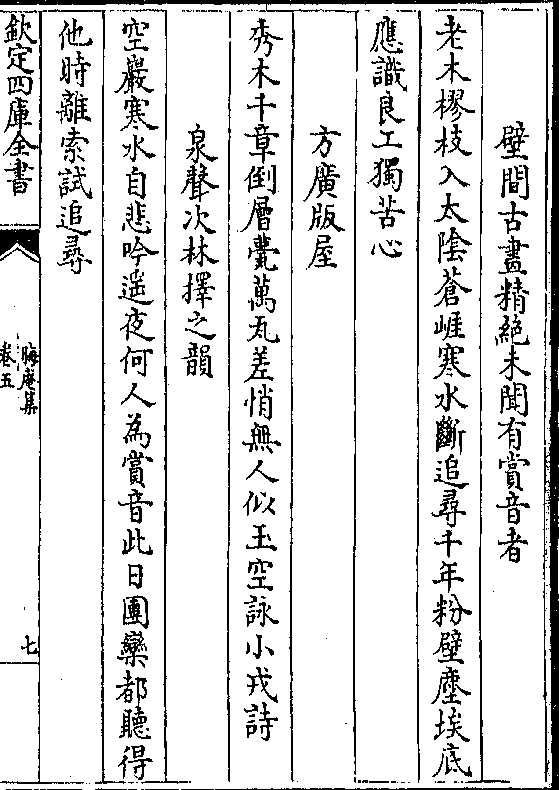 壁間古畫精絶未聞有賞音者
老木樛枝入太陰蒼崖寒水斷追尋千年粉壁塵埃底
應識良工獨苦心
方廣版屋
秀木千章倒層甍萬瓦差悄無人似玉空詠小戎詩
泉聲次林擇之韻
空巖寒水自悲吟遥夜何人為賞音此日團欒都聽得
他時離索試追尋
欽定四庫全書
晦庵集
卷五
七